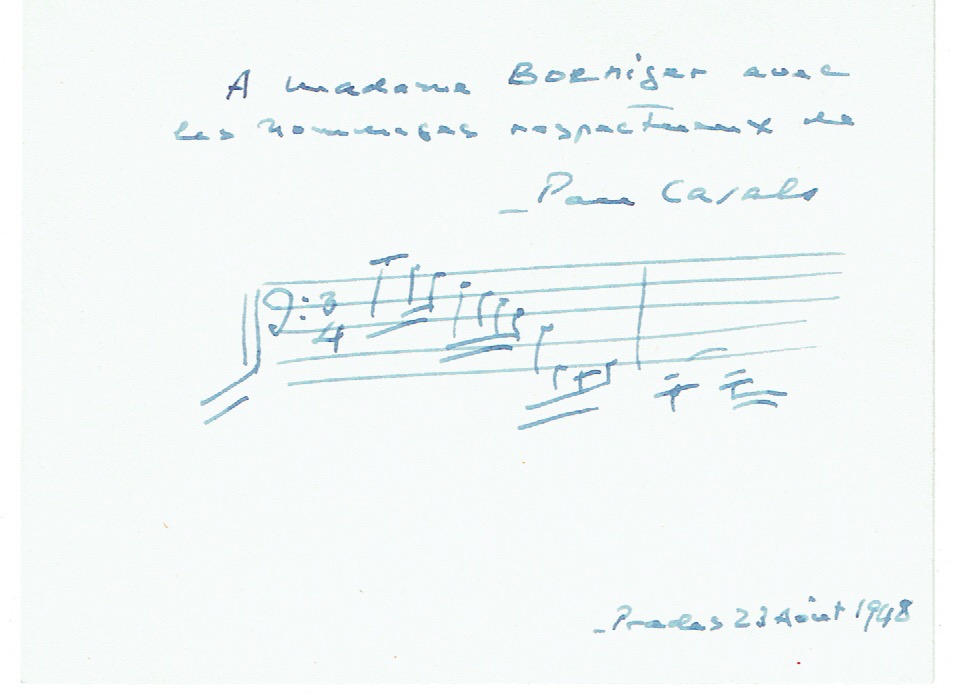 A madame Boerniger avec
les hommages respectueux de
_ Pau Casals
3
4
_ Prades 23 Août 1948